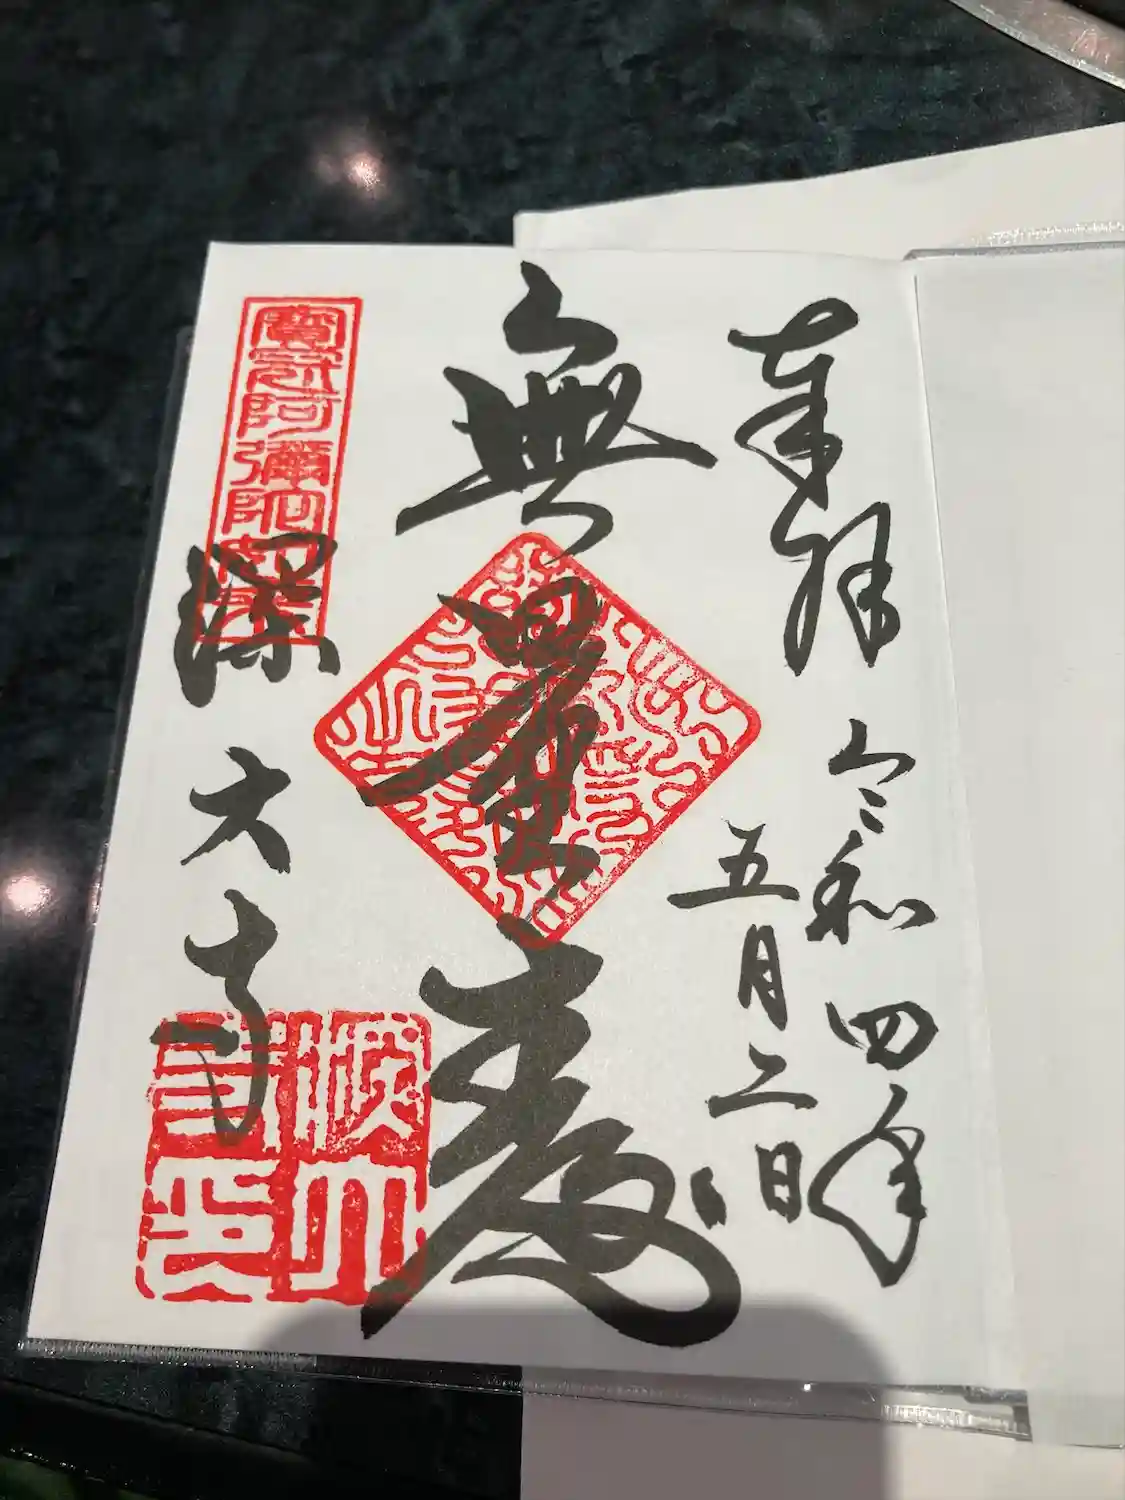 奉拝
令和四年
五月二日
無量壽
寳冠阿彌陀如来
深大寺
深大寺印